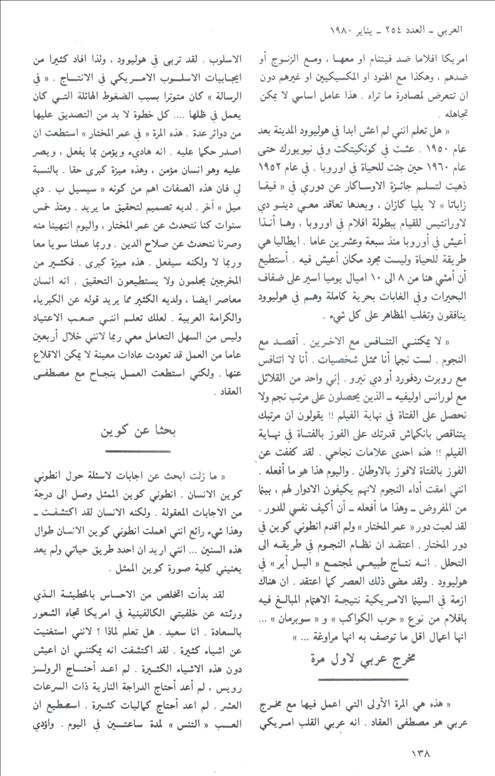 العربي ــ العدد ٢٥٤ ــ يناير ١٩٨٠
امريكا افلاما ضد فيتنام او معها ، ومع الزنوج أو
ضدهم ، وهكذا مع الهنود او المكسيكيين او غيرهم دون
ان تتعرض لمصادرة ما تراه . هذا عامل اساسي لا يمكن
تجاهله .
« هل تعلم انني لم اعش ابدا في هوليوود المدينة بعد
عام ١٩٥٠ . عشت في كونيكتكت وفي نيويورك حتى
عام ١٩٦٠ حين جئت للحياة في اوروبا . في عام ١٩٥٢
ذهبت لتسلم جائزة الاوسكار عن دوري في « فيفا
زاباتا » لا يليا كازان ، وبعدها تعاقد معي دينو دي
لاورانتيس للقيام ببطولة افلام في اوروبا ، وها أنذا
أعيش في أوروبا منذ سبعة وعشرين عاما . ايطاليا هي
طريقة للحياة وليست مجرد مكان أعيش فيه . أستطيع
أن أمشي هنا من ٨ الى ١٠ اميال يوميا اسير على ضفاف
البحيرات و في الغابات بحرية كاملة وهم في هوليوود
ينافقون وتغلب المظاهر على كل شيء .
« لا يمكنني التنافس مع الاخرين . أقصد مع
النجوم . لست نجما أنا ممثل شخصيات . أنا لا اتنافس
مع روبرت ردفورد أو دي نيرو . إني واحد من القلائل
مع لورانس اوليفيه ــ الذين يحصلون على مرتب نجم ولا
نحصل على الفتاة في نهاية الفيلم !! يقولون ان مرتبك
يتناقص بانكماش قدرتك على الفوز بالفتاة في نهاية
الفيلم !! هذه احدى علامات نجاحي . لقد كففت عن
الفوز بالفتاة لافوز بالاوطان . واليوم هذا هو ما أفعله .
انني امقت أداء النجوم لانهم يكيفون الادوار لهم ، بينما
من المفروض ــ وهذا ما أفعله ــ أن أكيف نفسي للدور .
لقد لعبت دور « عمر المختار » ولم اقدم انطوني كوين في
دور المختار . اعتقد ان نظام النجوم في طريقه الى
التحلل . انه نتاج طبيعي لمجتمع « البل أير » في
هوليوود . ولقد مضى ذلك العصر كما اعتقد . ان هناك
ازمة في السينما الامريكية نتيجة الاهتمام المبالغ فيه
بافلام من نوع « حرب الكواكب » و « سوبرمان » ...
انها اعمال اقل ما توصف به انها مراوغة ... »
مخرج عربي لاول مرة
« هذه هي المرة الأولى التي اعمل فيها مع مخرج
عربي هو مصطفى العقاد . انه عربي القلب امريكي
الاسلوب . لقد تربى في هوليوود ، ولذا افاد كثيرا من
ايجابيات الاسلوب الامريكي في الانتاج . « في
الرسالة » كان متوترا بسبب الضغوط الهائلة التي كان
يعمل في ظلها .... كل خطوة لا بد من التصديق عليها
من دوائر عدة . هذه المرة « في عمر المختار » استطعت ان
اصدر حكما عليه . انه هاديء ويؤمن بما يفعل ، ويصر
عليه وهو انسان مؤمن ، وهذه ميزة كبرى حقا . بالنسبة
لي فان هذه الصفات اهم من كونه « سيسيل ب . دي
ميل » أخر . لديه تصميم لتحقيق ما يريد . ومنذ خمس
سنوات كنا نتحدث عن عمر المختار ، واليوم انتهينا منه
وصرنا نتحدث عن صلاح الدين . وربما عملنا سويا معا
وربما لا ولكنه سيفعل . هذه ميزة كبرى . فكثير من
المخرجين يحلمون ولا يستطيعون التحقيق . انه انسان
معاصر ايضا ، ولديه الكثير مما يريد قوله عن الكبرياء
والكرامة العربية . لعلك تعلم انني صعب الاعتياد
وليس من السهل التعامل معي ربما لانني خلال أربعين
عاما من العمل قد تعودت عادات معينة لا يمكن الاقلاع
عنها . ولكني استطعت العمل بنجاح مع مصطفى
العقاد .
بحثا عن كوين
« ما زلت ابحث عن اجابات لاسئلة حول انطوني
كوين الانسان . انطوني كوين الممثل وصل الى درجة
من الاجابات المعقولة . ولكنه الانسان لقد اكتشفت ــ
وهذا شيء رائع انني اهملت انطوني كوين الانسان طوال
هذه السنين ... انني اريد ان احدد طريق حياتي ولم يعد
يعنيني كلية صورة كوين الممثل .
لقد بدأت اتخلص من الاحساس بالخطيئة الذي
ورثته عن خلفيتي الكالفينية في امريكا تجاه الشعور
بالسعادة . انا سعيد . هل تعلم لماذا ؟ لانني استغنيت
عن اشياء كثيرة . لقد اكتشفت انه يمكنني ان اعيش
دون هذه الاشياء الكثيرة . لم اعد أحتاج الرولز
رويس ، لم أعد أحتاج الدراجة النارية ذات السرعات
العشر . لم اعد أحتاج كماليات كثيرة . استطيع ان
العب « التنس » لمدة ساعتين في اليوم . واؤدي
١٣٨